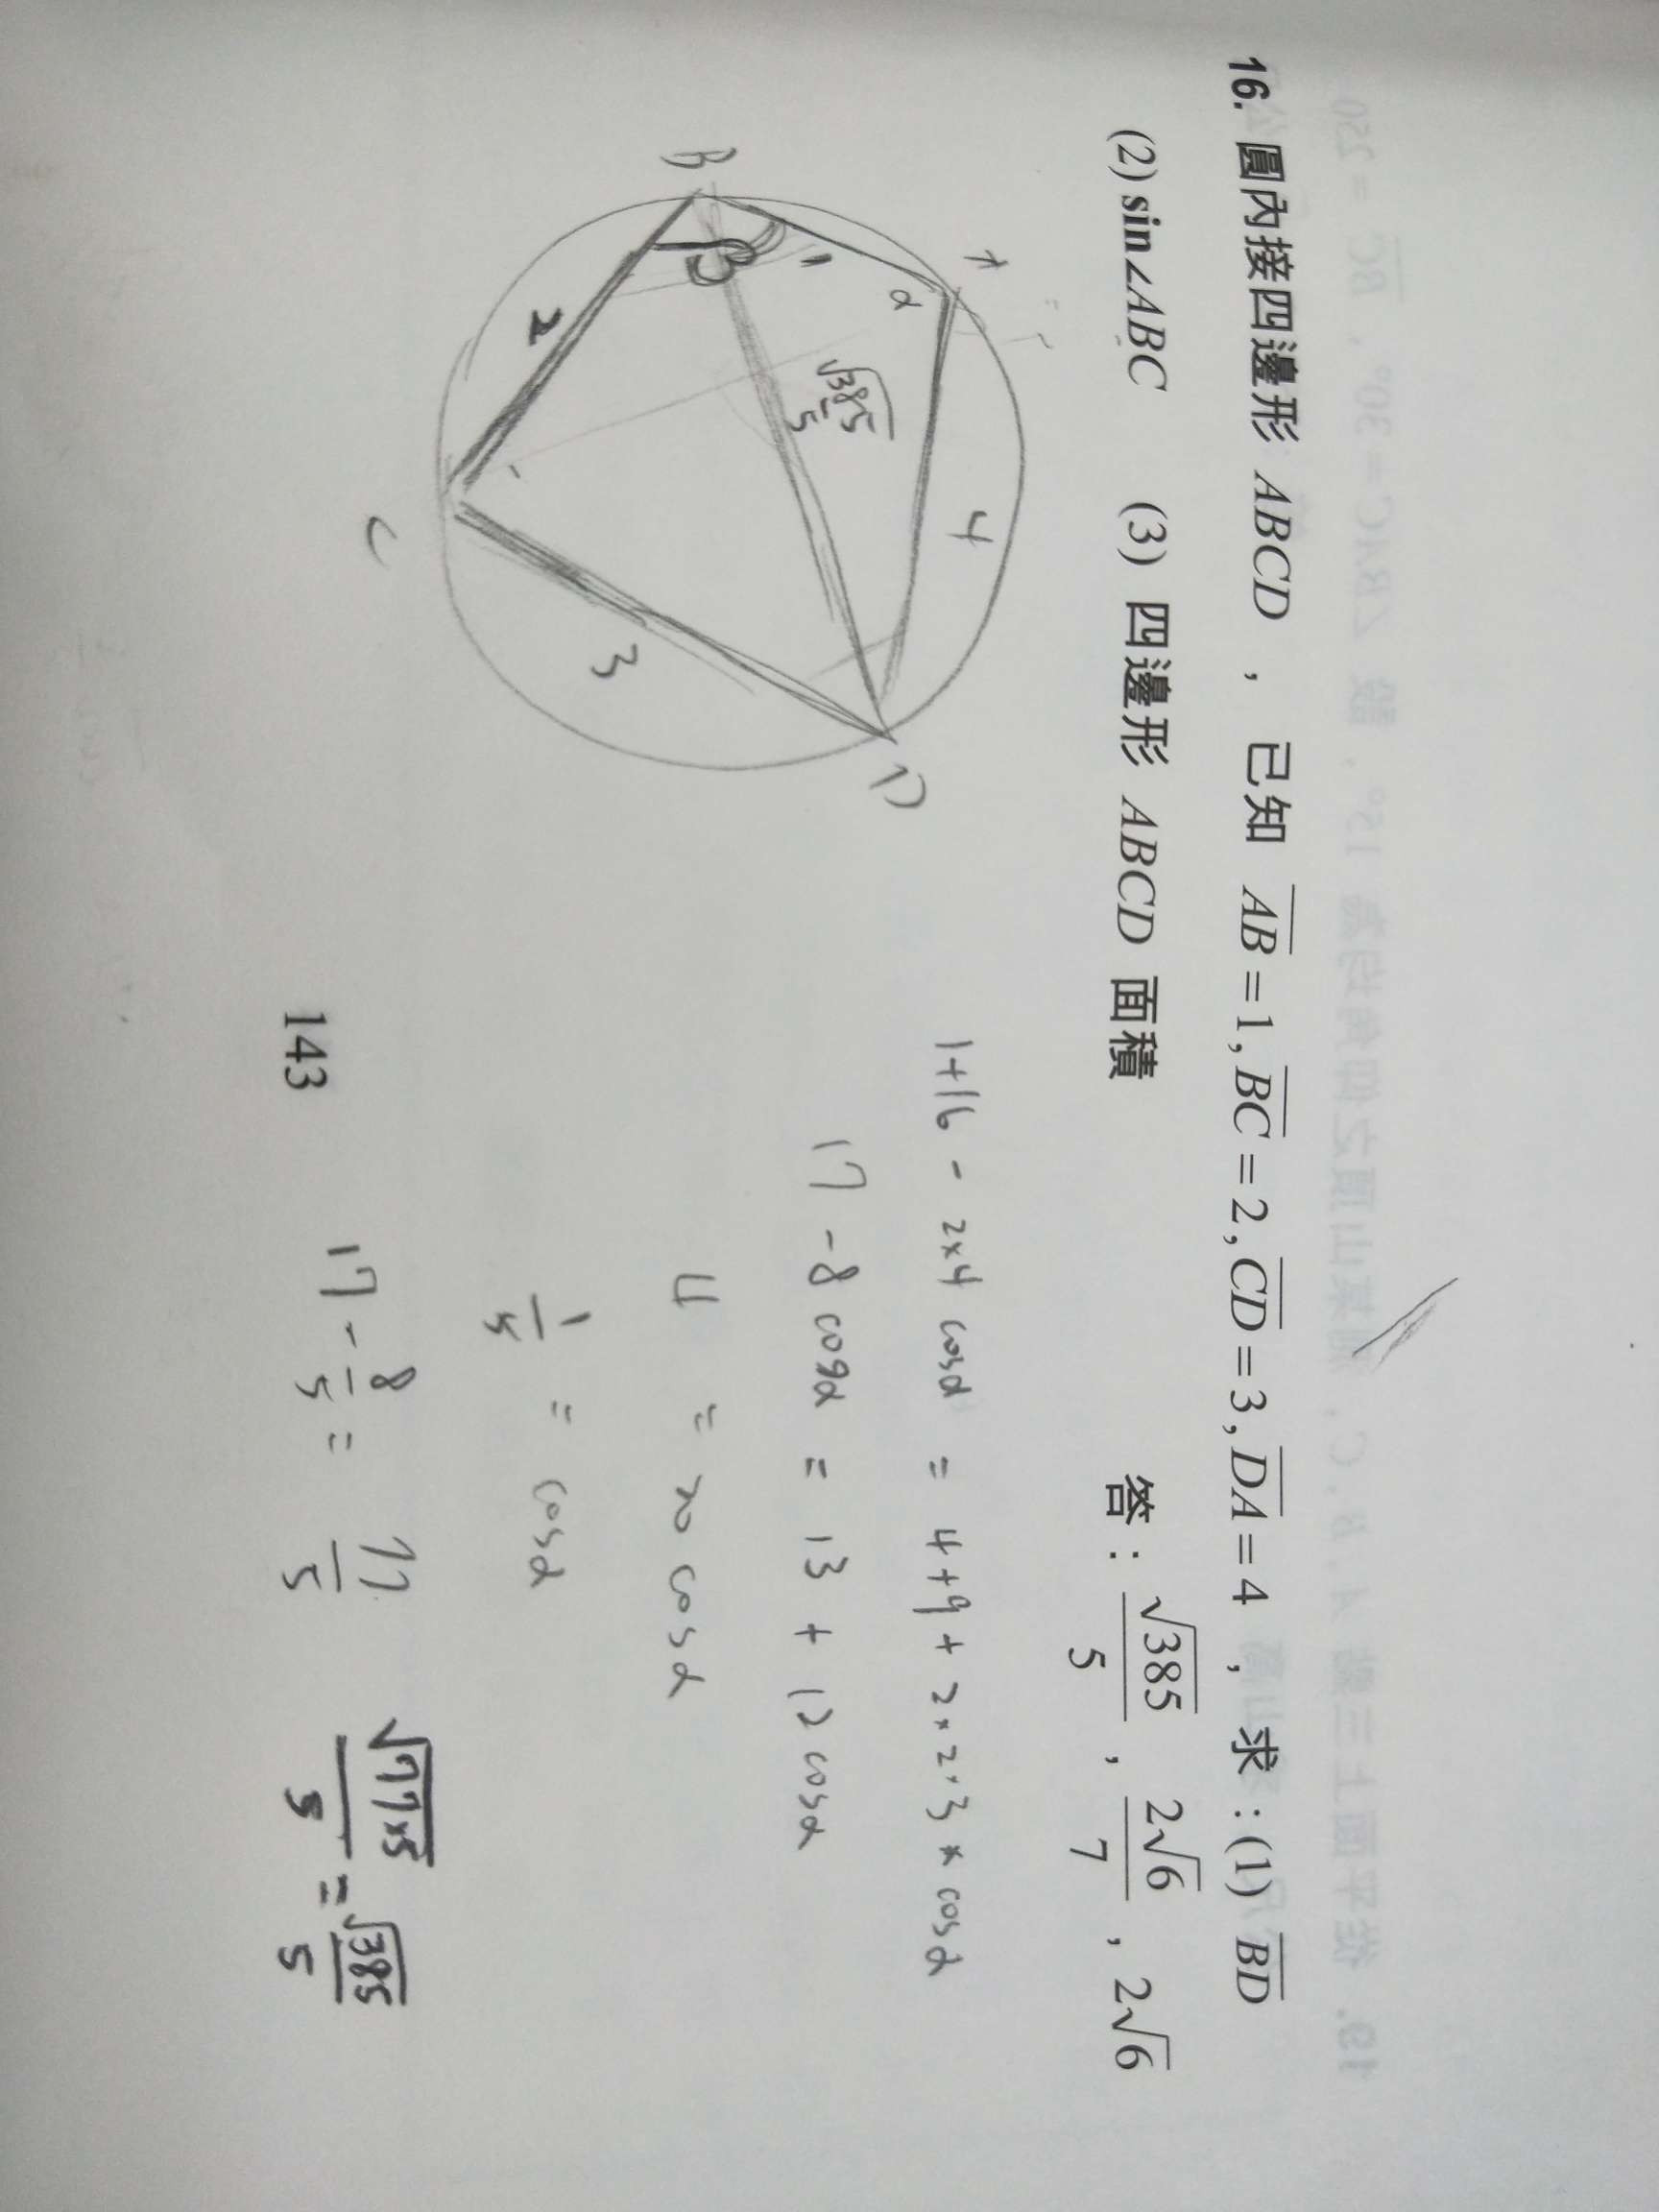 16. 圓內接四邊形 ABCD ，已知 AB=1, BC=2, CD=3, DA=4 ，求：(1) BD
(2) sin∠ABC (3) 四邊形 ABCD 面積 答：√385/5 , 2√6/7 , 2√6
A
B
C
D
α
β
1
2
3
4
√385/5
1+16 - 2×4 cosα = 4+9+2×2×3×cosα
17 - 8 cosα = 13 + 12 cosα
4 = 20 cosα
1/5 = cosα
17 - 8/5 = 77/5 √77×5/5 = √385/5
143